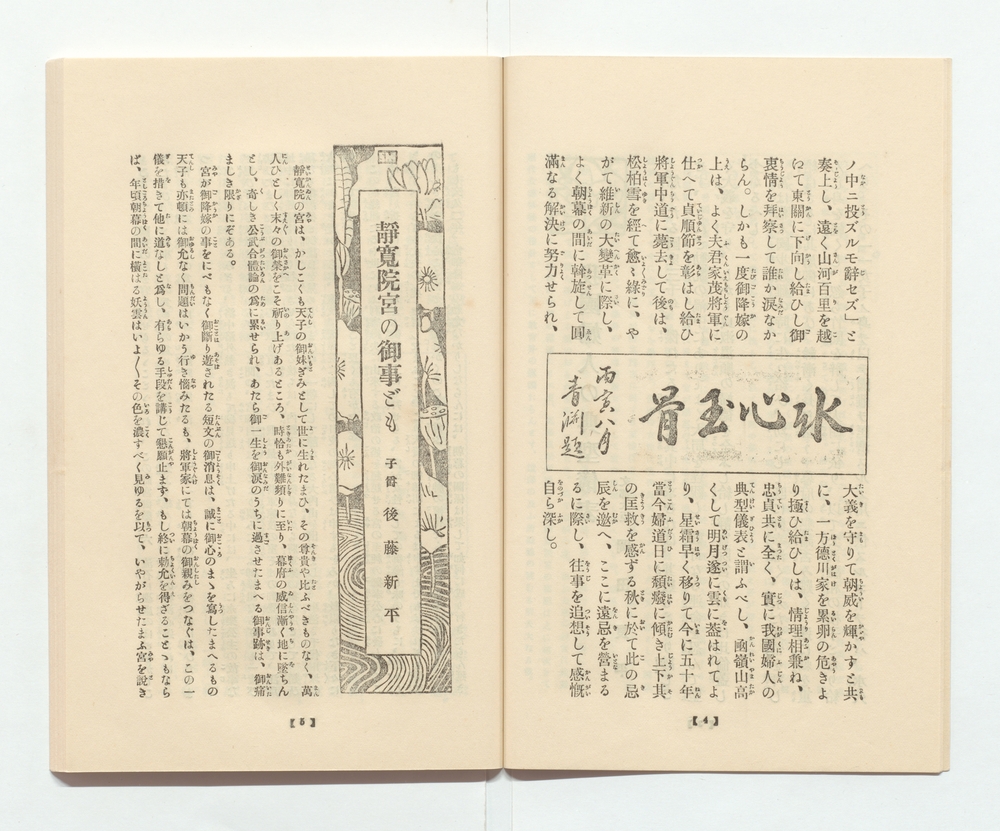 ノ中ニ投ズルモ辭セズ」と
奏上し、遠く山河百里を越
にて東關に下向し給ひし御
衷情を拜察して誰か涙なか
らん。しかも一度御降嫁の
上は、よく夫君家茂將軍に
仕へて貞順節を彰はし給ひ
將軍中道に薨去して後は、
松柏雪を經て愈〻綠に、や
がて維新の大變革に際し、
よく朝幕の間に斡旋して圓
滿なる解決に努力せられ、
氷心玉骨
丙寅八月
青淵題
大義を守りて朝威を輝かすと共
に、一方德川家を累卵の危きよ
り極ひ給ひしは、情理相兼ね、
忠貞共に全く、實に我國婦人の
典型儀表と謂ふべし、凾嶺山高
くして明月遂に雲に蓋はれてよ
り、星霜早く移りて今に五十年
當今婦道日に頽癈に傾き上下其
の匡救を感ずる秋に於て此の忌
辰を邀へ、ここに遠忌を營まる
るに際し、往事を追想して感慨
自ら深し。
【4】
靜寬院宮の御事ども
子爵 後藤新平
靜寬院の宮は、かしこくも天子の御妹ぎみとして世に生れたまひ、その尊貴や比ふべきものなく、萬
人ひとしく末々の御榮をこそ祈り上げあるところ、時恰も外難頻りに至り、幕府の威信漸く地に墜ちん
とし、寄しき公武合體論の爲に累せられ、あたら御一生を御涙のうちに過させたまへる御事跡は、御痛
ましき限りにぞある。
宮が御降嫁の事をにべもなく御斷り遊されたる短文の御消息は、誠に御心のまゝを寫したまへるもの
天子も亦頓には御允なく問題はいかう行き惱みたるも、將軍家にては朝幕の御親みをつなぐは、この一
儀を措きて他に道なしと爲し、有らゆる手段を講じて懇願止まず、もし終に勅允を得ざることゝもなら
ば、年頃朝幕の間に橫はる妖雲はいよ〱その色を濃すべく見ゆるを以て、いやがらせたまふ宮を說き
【5】